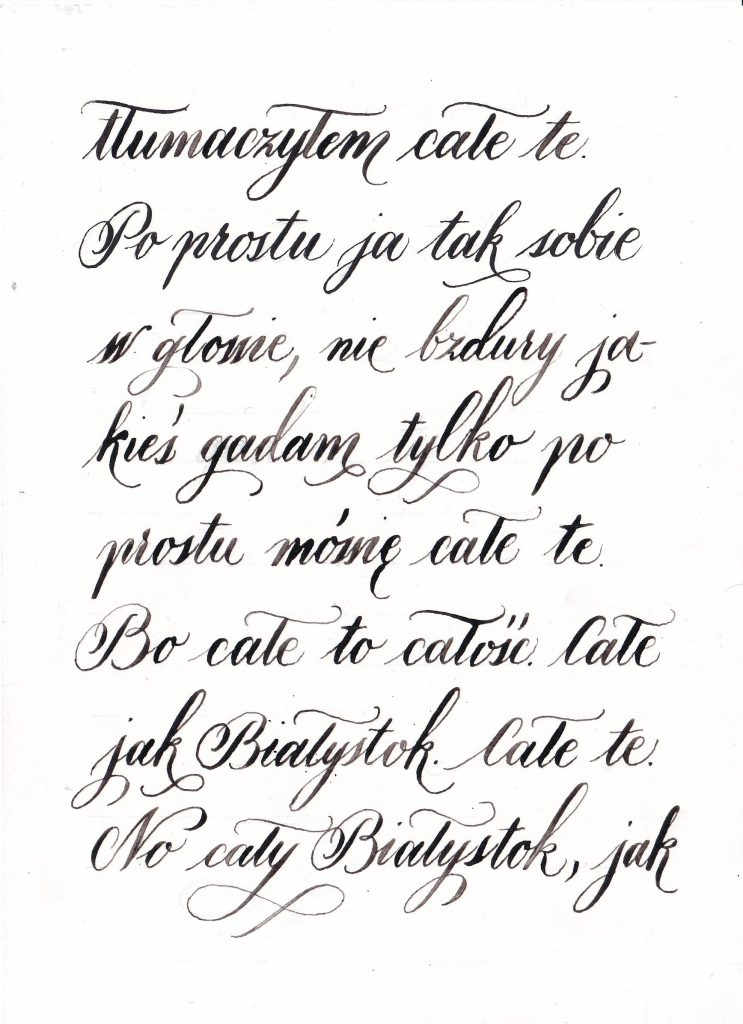 tłumaczyłem całe te.
Po prostu ja tak sobie
w głowie, nie bzdury ja-
kieś gadam tylko po
prostu mówię całe te.
Bo całe to całość. Całe
jak Białystok. Całe te.
No cały Białystok, jak